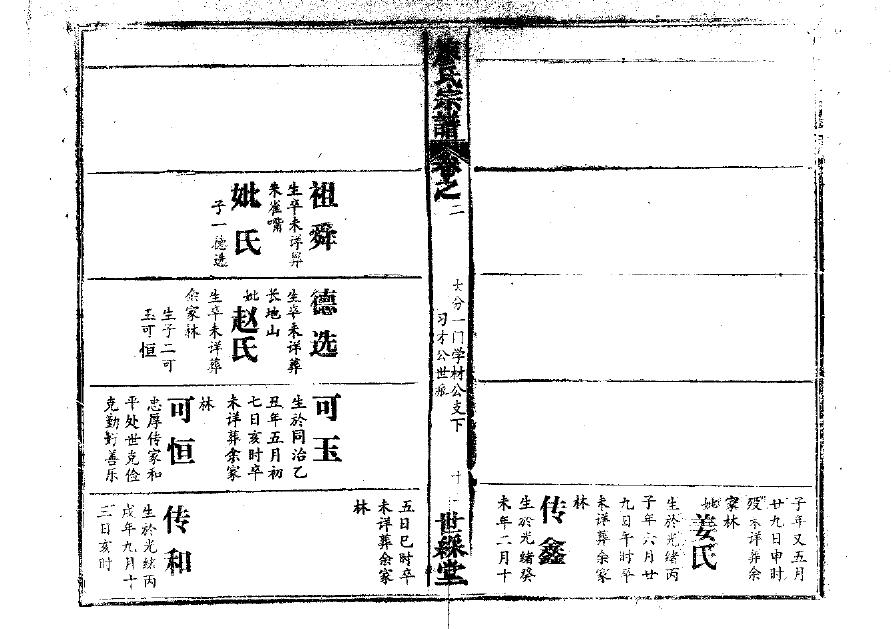 子年又五月
廿九日申时
殁未详葬余
家林
妣姜氏
生於光绪丙
子年六月廿
九日午时卒
未详葬余家
林
传鑫
生於光绪癸
未年二月十
廖氏宗譜 卷之二
大分一门学材公支下
习才公世派
十一
世綵堂
祖舜
生卒未详葬
朱雀嘴
妣氏
子一德选
德选
生卒未详葬
长地山
妣赵氏
生卒未详葬
余家林
生子二可
玉可恒
可玉
生於同治乙
丑年五月初
七日亥时卒
未详葬余家
林
可恒
忠厚传家和
平处世克俭
克勤好善乐
五日巳时卒
未详葬余家
林
传和
生於光绪丙
戌年九月十
三日亥时